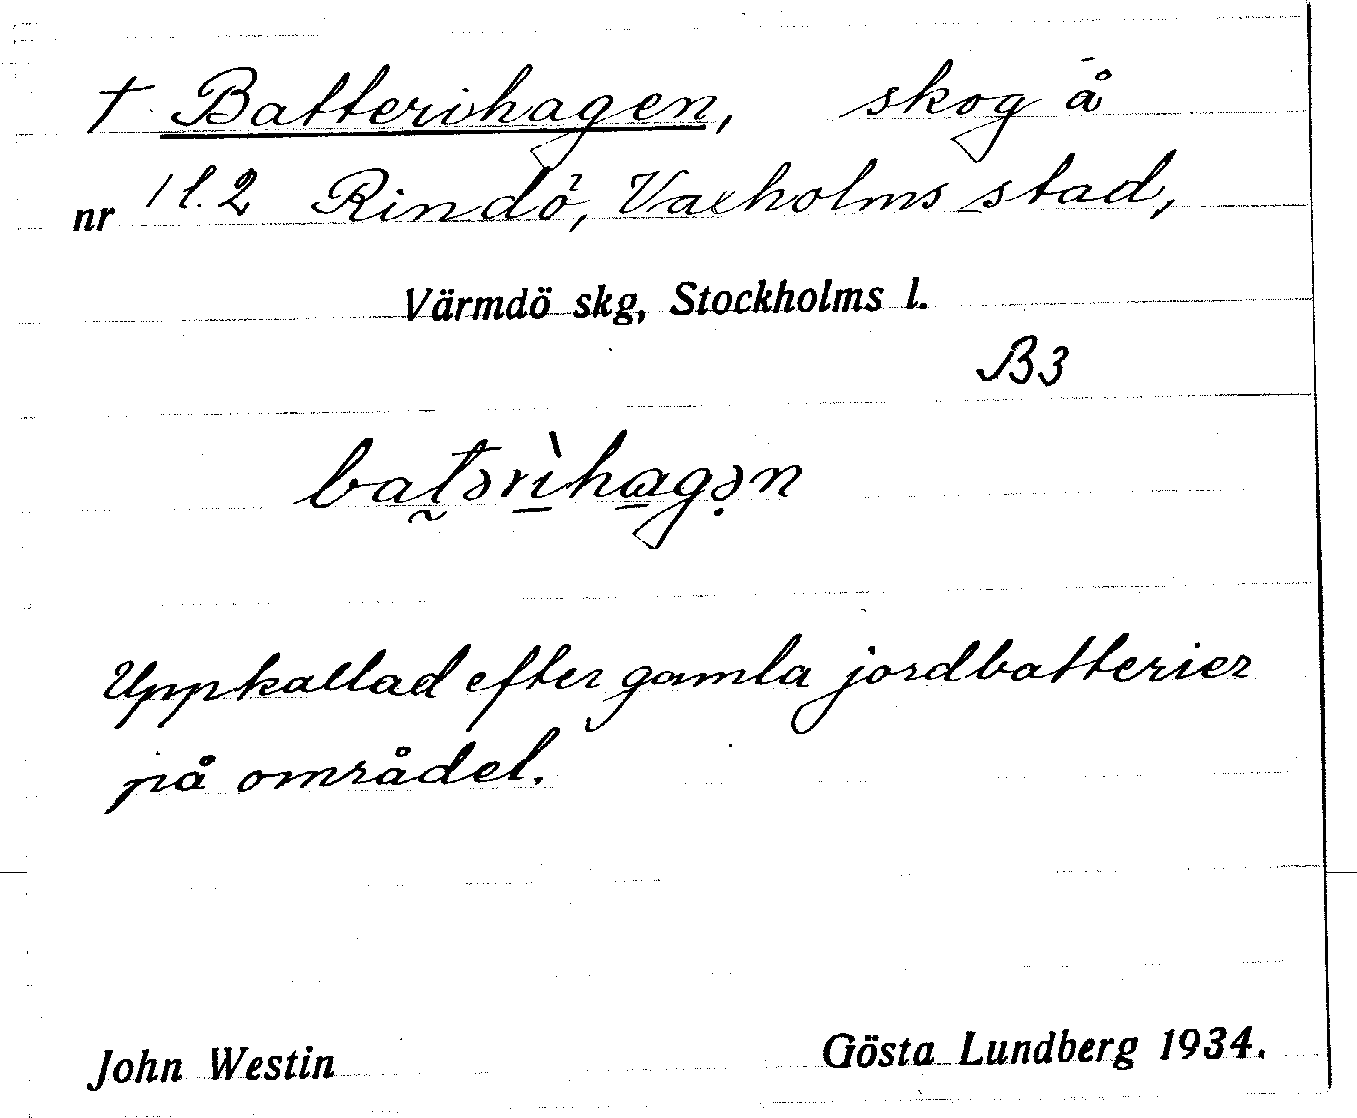 † Batterihagen, skog å
nr 1 l. 2 Rindö, Vaxholms stad,
Värmdö skg, Stockholms l.
B3
batərìhagən
Uppkallad efter gamla jordbatterier
på området.
John Westin Gösta Lundberg 1934.